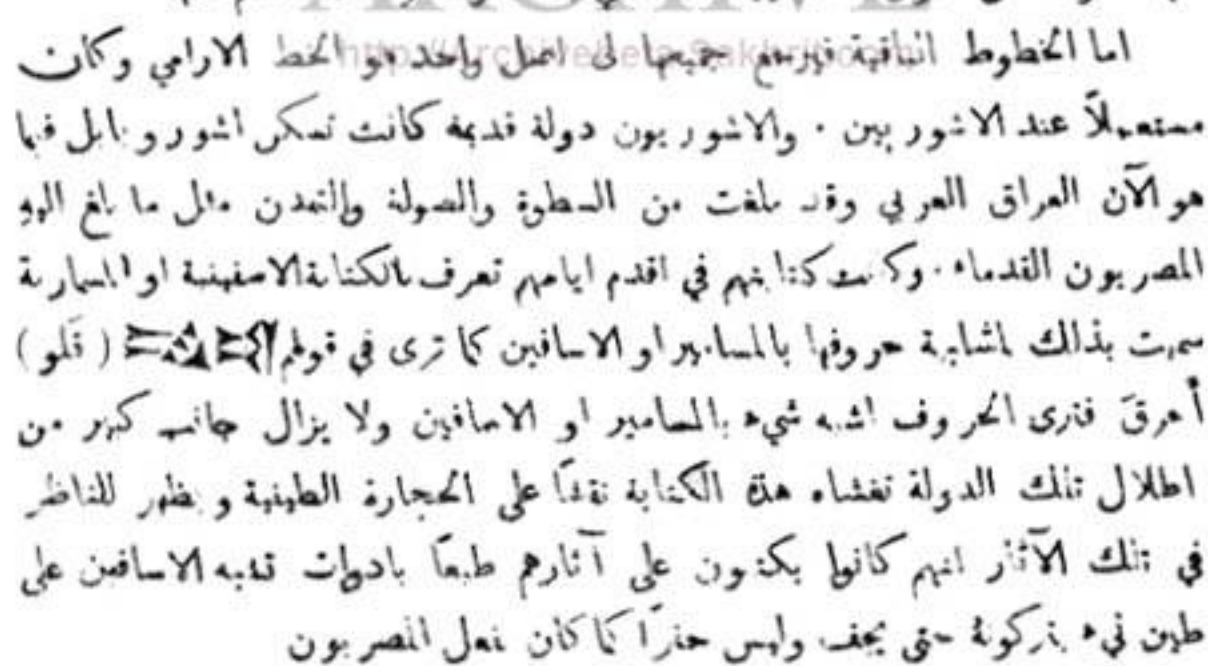 اما الخطوط الباقية فيرجع جميعها الى اصل واحد هو الخط الارامي وكان
مستعملاً عند الاشوريين . والاشوريون دولة قديمة كانت تسكن اشور وبابل فيما
هو الآن العراق العربي وقد بلغت من السطوة والصولة والتمدن مثل ما بلغ اليهِ
المصريون القدماء . وكانت كتابتهم في اقدم ايامهم تعرف بالكتابة الاسفينية او المسمارية
سميت بذلك لمشابهة حروفها بالمسامير او الاسافين كما ترى في قولهم ( قَلو )
أحرقَ فترى الحروف اشبه شيء بالمسامير او الاسافين ولا يزال جانب كبير من
اطلال تلك الدولة تغشاه هذه الكتابة نقشاً على الحجارة الطينية ويظهر للناظر
في تلك الآثار انهم كانوا يكتبون على آثارهم طبعاً بادوات تشبه الاسافين على
طين نيء يتركونهُ حتى يجف وليس حفراً كما كان يفعل المصريون